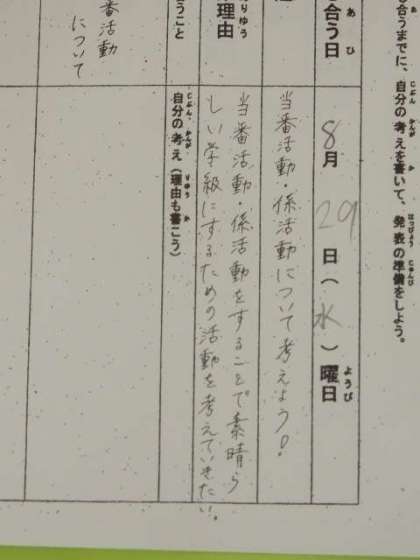 合うまでに、自分の考えを書いて、発表の準備をしよう。
合う日
8月29日(水)曜日
当番活動・係活動について考えよう!
理由
当番活動・係活動をすることで素晴ら
しい学級にするための活動を考えていきたい。
うこと
自分の考え(理由も書こう)
番活動
について